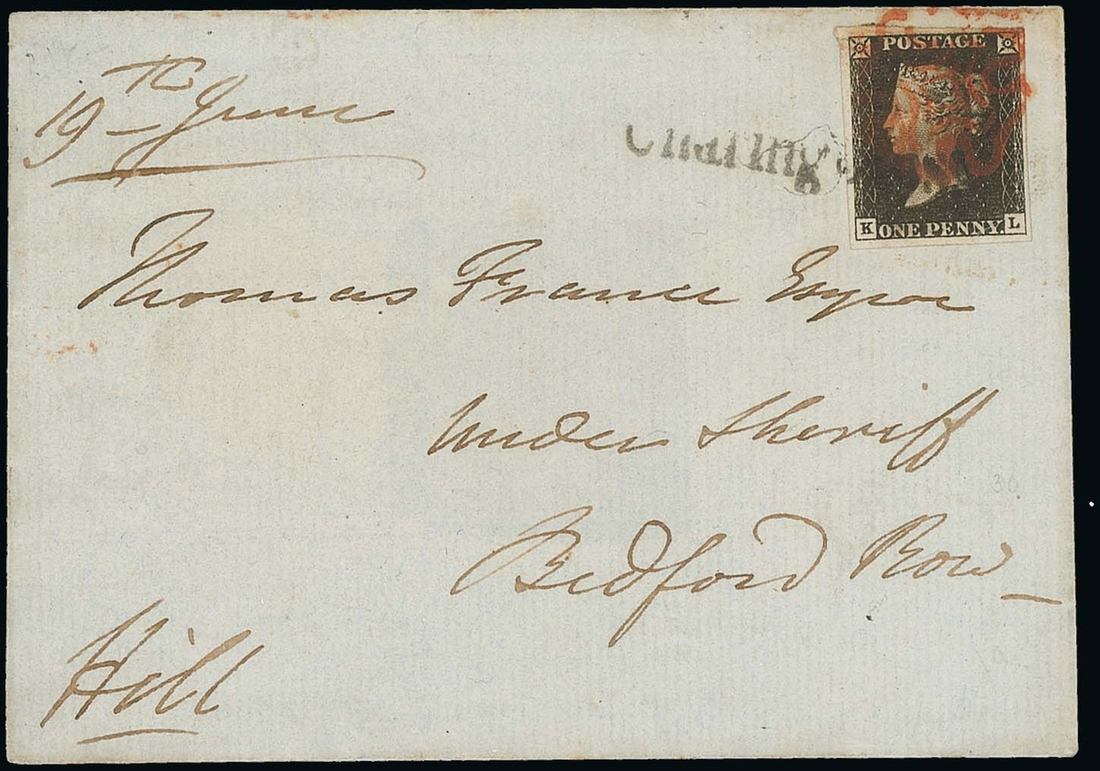 19th June
POSTAGE
Charing
K ONE PENNY. L
Thomas France Esqre
Under Sheriff
Bedford Row
30
Hill